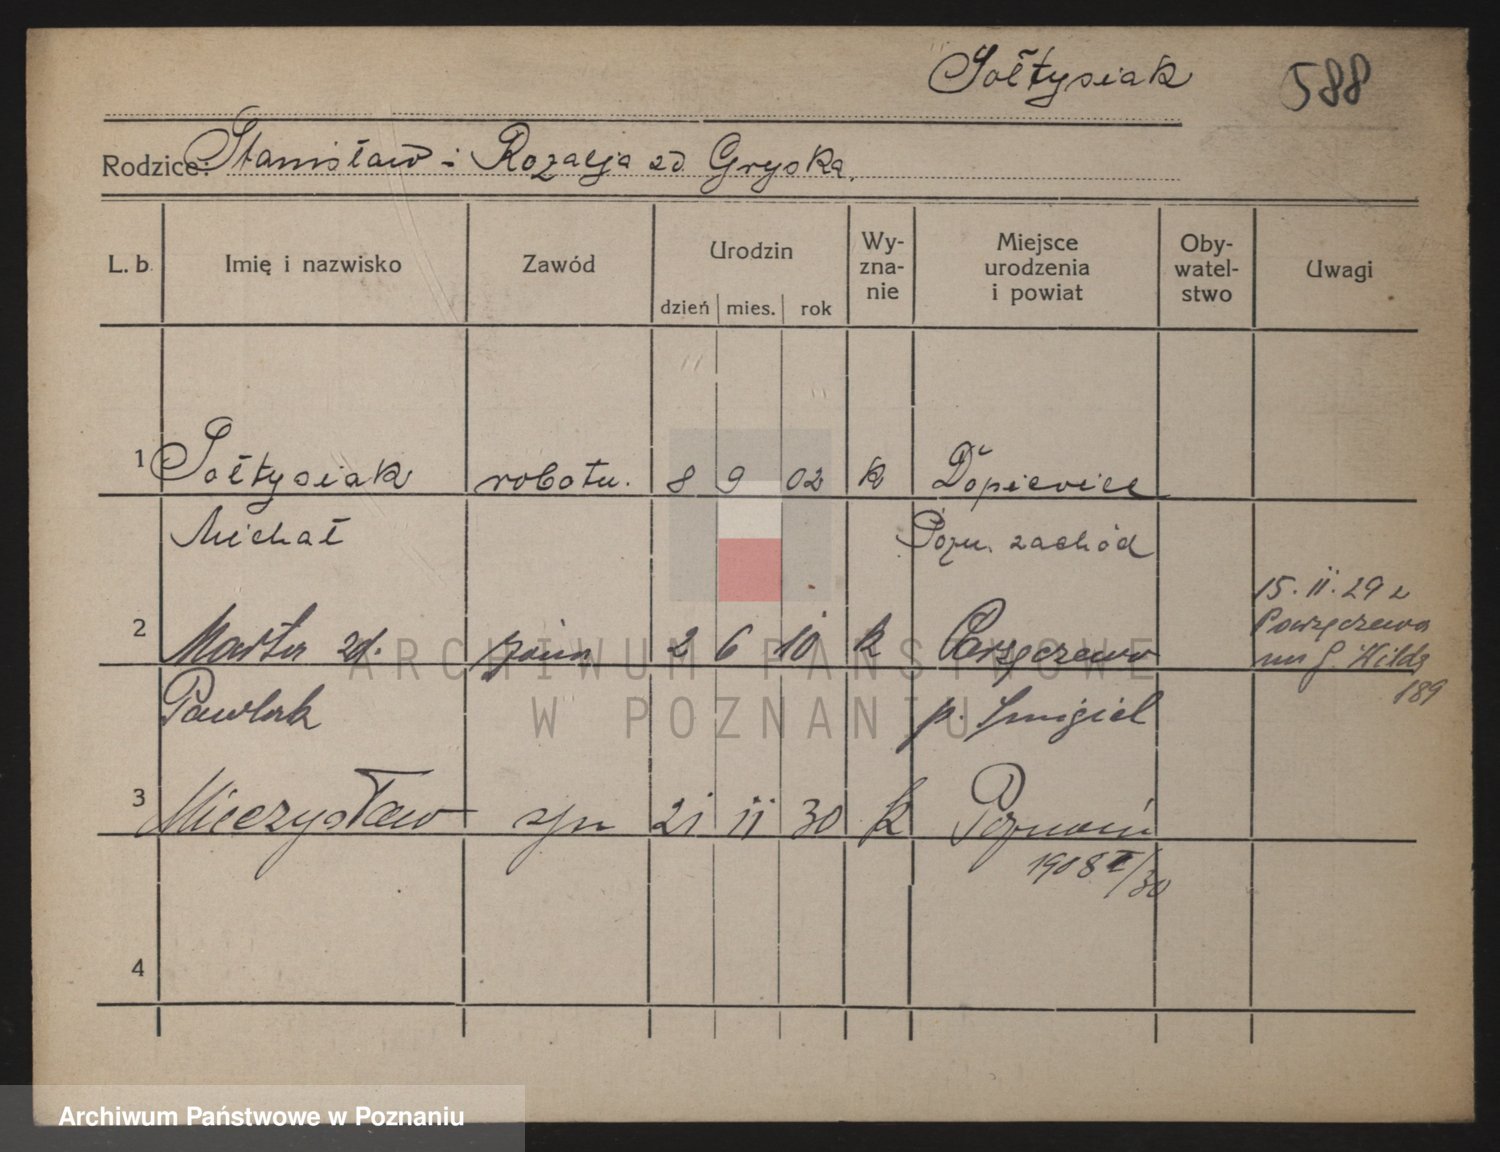 Sołtysiak 588
Rodzice: Stanisław i Rozalja zd Gryska.
L. b. Imię i nazwisko Zawód Urodzin dzień mies. rok Wyznanie Miejsce urodzenia i powiat Obywatelstwo Uwagi
1 Sołtysiak robotn. 8 9 02 k Dopiewiec
Michał Pozn. zachód
15. II. 29 z
2 Marta zd. żona 2 6 10 k
189
Pawlak p. Śmigiel
3 Mieczysław syn 21 II 30 k Poznań
1908 /30
4
ARCHIWUM PAŃSTWOWE
W POZNANIU
Archiwum Państwowe w Poznaniu